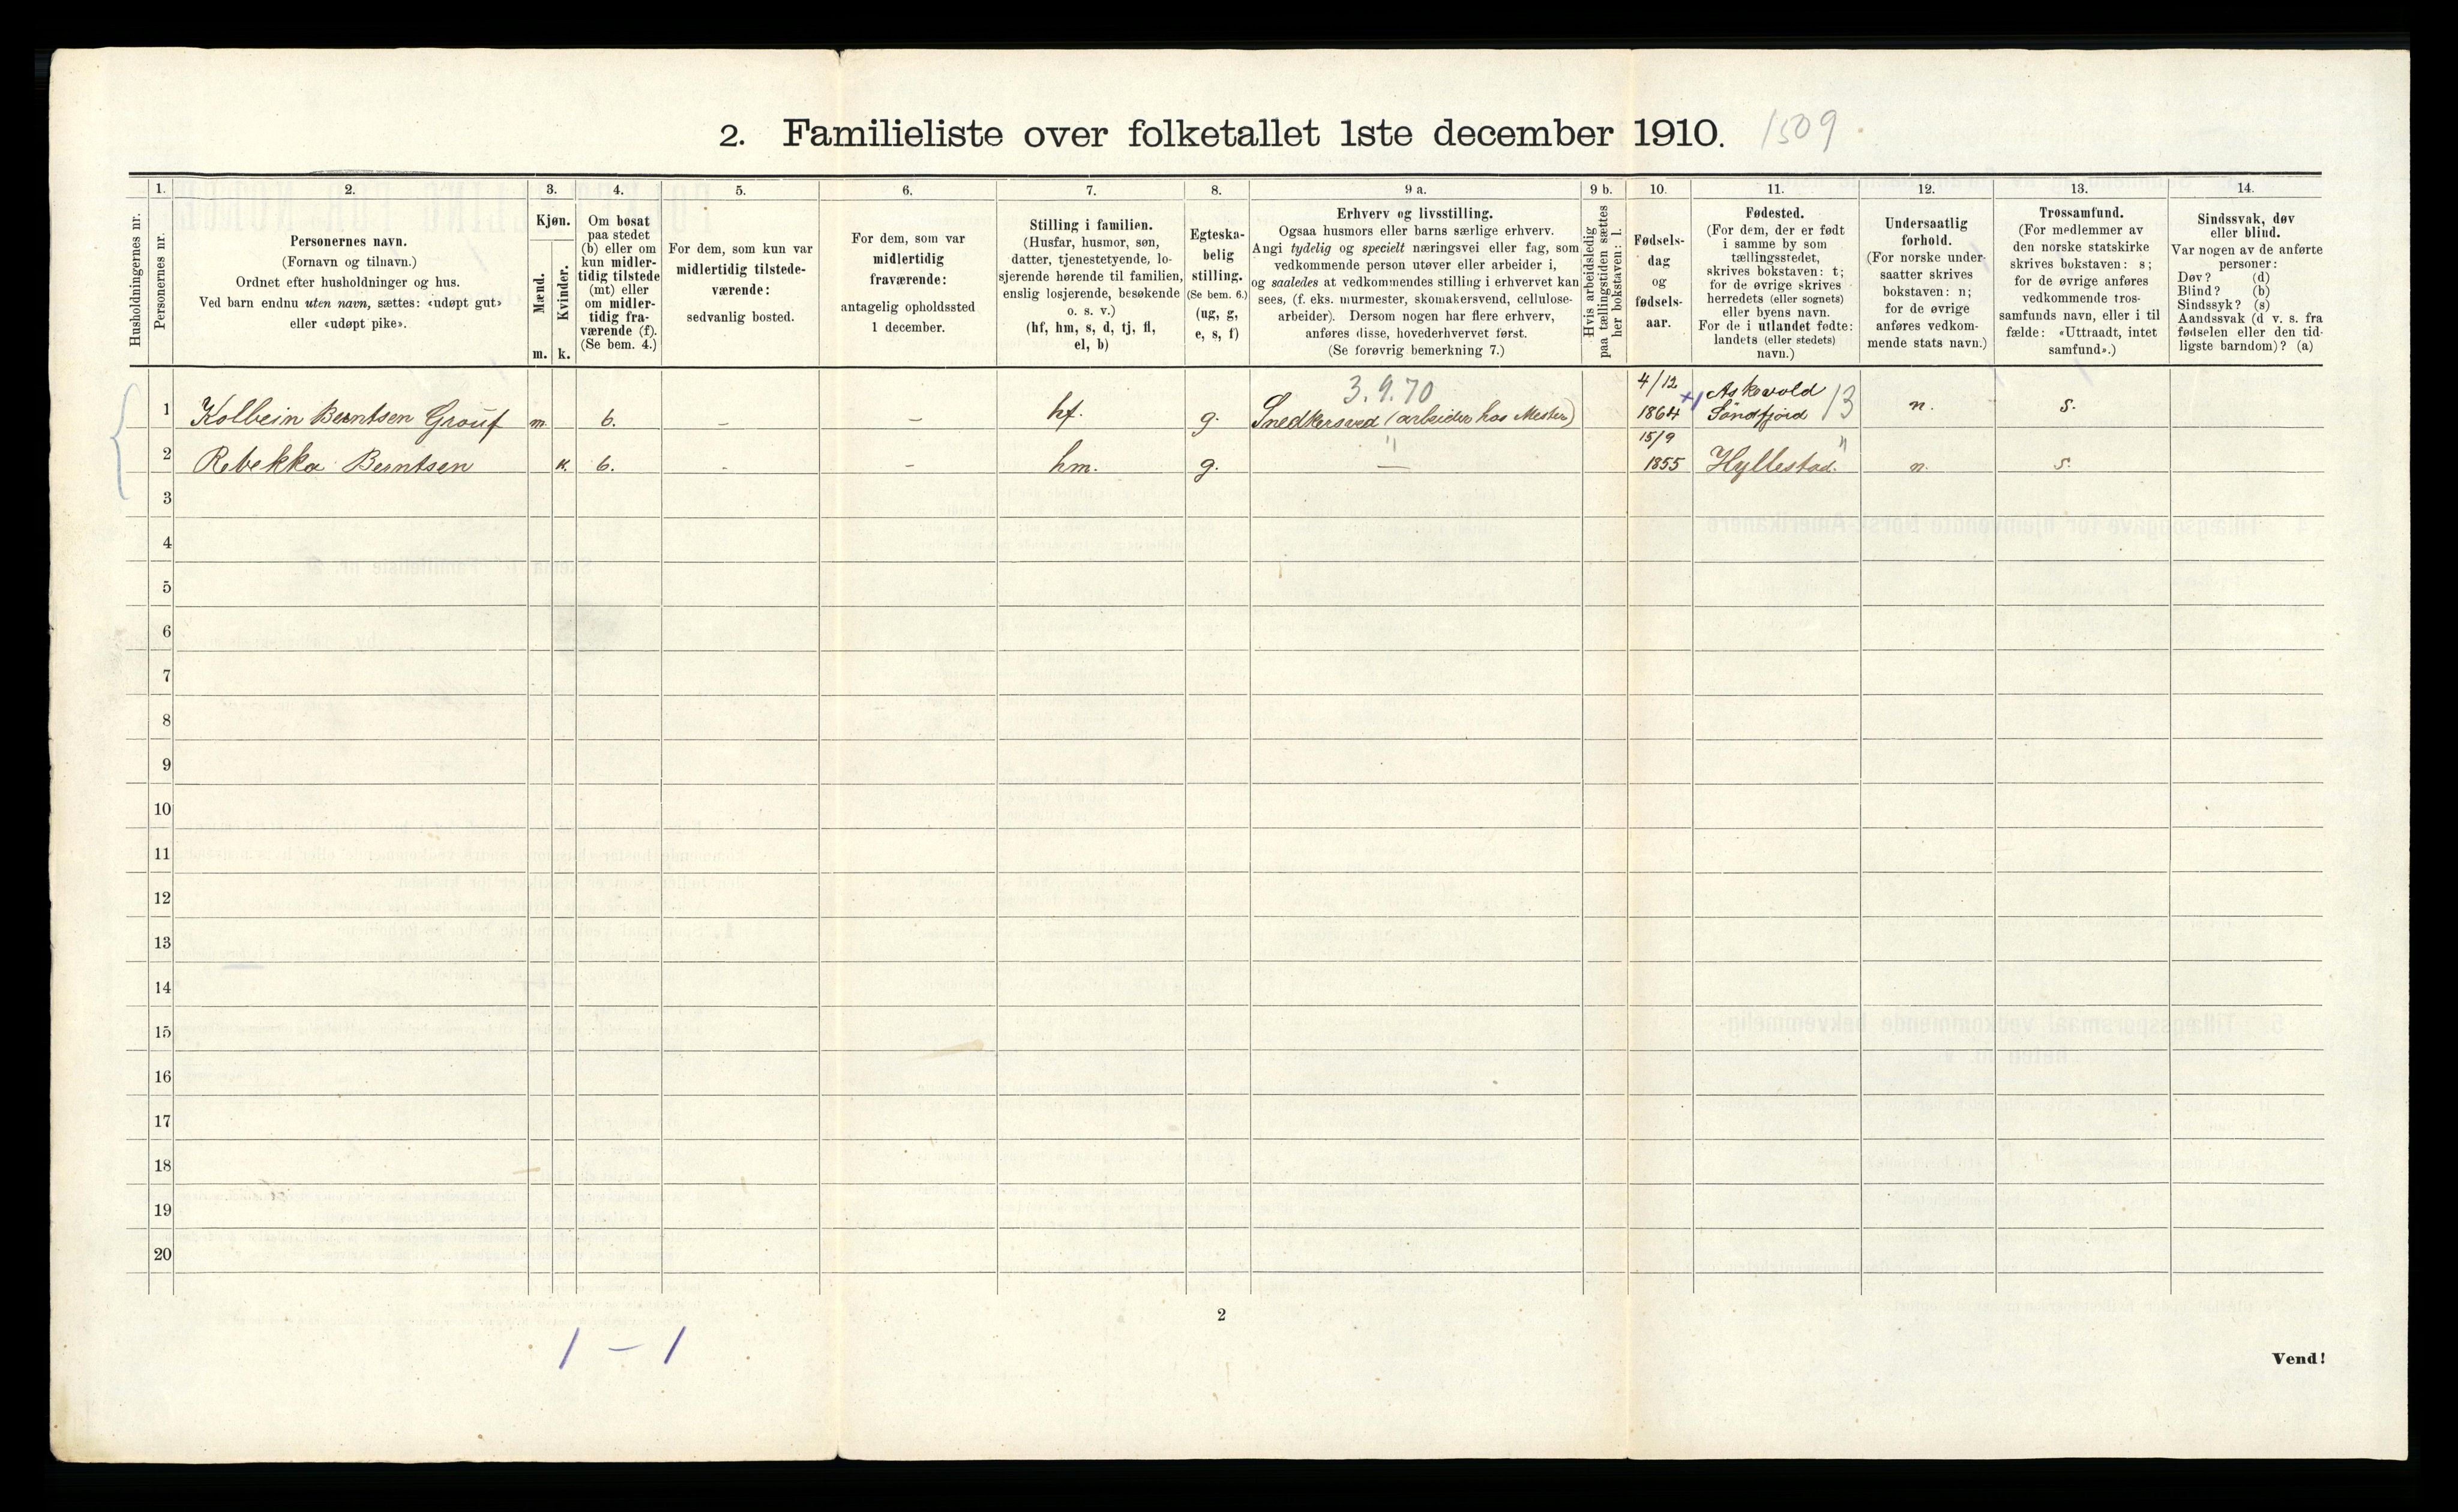 2. Familieliste over folketallet 1ste december 1910. 1509
1. 2. 3. 4. 5. 6. 7. 8. 9 a. 9 b. 10. 11. 12. 13. 14.
Husholdningernes nr.
Personernes nr.
Personernes navn.
(Fornavn og tilnavn.)
Ordnet efter husholdninger og hus.
Ved barn endnu uten navn, sættes: «udøpt gut»
eller «udøpt pike».
Kjøn.
Mænd.
Kvinder.
m. k.
Om bosat
paa stedet
(b) eller om
kun midler-
tidig tilstede
(mt) eller
om midler-
tidig fra-
værende (f).
(Se bem. 4.)
For dem, som kun var
midlertidig tilstede-
værende:
sedvanlig bosted.
For dem, som var
midlertidig
fraværende:
antagelig opholdssted
1 december.
Stilling i familien.
(Husfar, husmor, søn,
datter, tjenestetyende, lo-
sjerende hørende til familien,
enslig losjerende, besøkende
o. s. v.)
(hf, hm, s, d, tj, fl,
el, b)
Egteska-
belig
stilling.
(Se bem. 6.)
(ug, g,
e, s, f)
Erhverv og livsstilling.
Ogsaa husmors eller barns særlige erhverv.
Angi tydelig og specielt næringsvei eller fag, som
vedkommende person utøver eller arbeider i,
og saaledes at vedkommendes stilling i erhvervet kan
sees, (f. eks. murmester, skomakersvend, cellulose-
arbeider). Dersom nogen har flere erhverv,
anføres disse, hovederhvervet først.
(Se forøvrig bemerkning 7.)
Hvis arbeidsledig
paa tællingstiden sættes
her bokstaven: l.
Fødsels-
dag
og
fødsels-
aar.
Fødested.
(For dem, der er født
i samme by som
tællingsstedet,
skrives bokstaven: t;
for de øvrige skrives
herredets (eller sognets)
eller byens navn.
For de i utlandet fødte:
landets (eller stedets)
navn.)
Undersaatlig
forhold.
(For norske under-
saatter skrives
bokstaven: n;
for de øvrige
anføres vedkom-
mende stats navn.)
Trossamfund.
(For medlemmer av
den norske statskirke
skrives bokstaven: s;
for de øvrige anføres
vedkommende tros-
samfunds navn, eller i til
fælde: «Uttraadt, intet
samfund».)
Sindssvak, døv
eller blind.
Var nogen av de anførte
personer:
Døv? (d)
Blind? (b)
Sindssyk? (s)
Aandssvak (d v. s. fra
fødselen eller den tid-
ligste barndom)? (a)
3.9.70 4/12 Askevold
1 Kolbein Berntsen m. b. – – hf. g. (arbeider hos Mester) 1864 Söndfjord 13 n. s.
" 15/9 "
2 Rebekka Berntsen k. b. - – hm. g. — 1855 Hyllestad. n. s.
3
4
5
6
7
8
9
10
11
12
13
14
15
16
17
18
19
20
2
1 – 1
Vend!